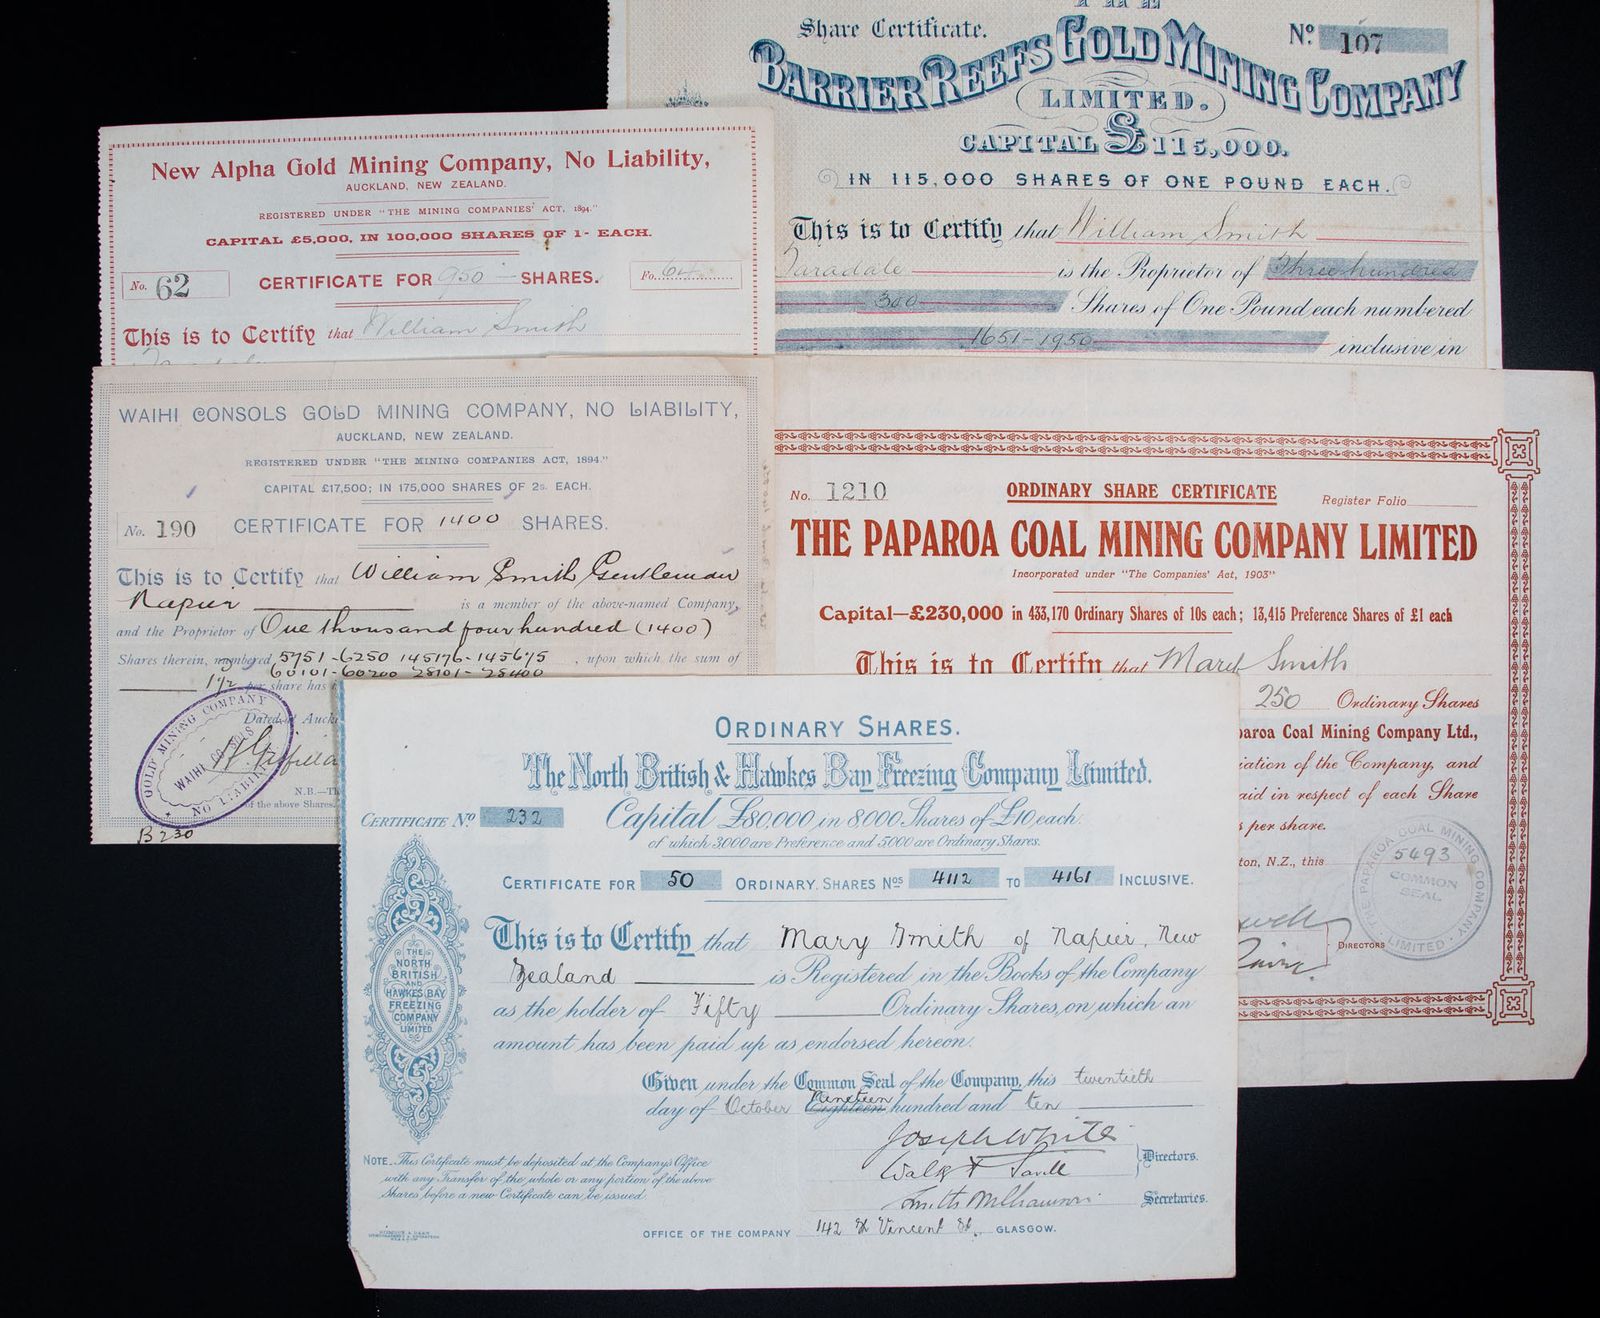 THE
Share Certificate.
No. 107
BARRIER REEFS GOLD MINING COMPANY
LIMITED.
CAPITAL £115,000.
IN 115,000 SHARES OF ONE POUND EACH.
This is to Certify that William Smith
Taradale is the Proprietor of Three hundred
300 Shares of One Pound each numbered
1651-1950 inclusive in
New Alpha Gold Mining Company, No Liability,
AUCKLAND, NEW ZEALAND.
REGISTERED UNDER "THE MINING COMPANIES' ACT, 1894."
CAPITAL £5,000, IN 100,000 SHARES OF 1- EACH.
No. 62 CERTIFICATE FOR 950 SHARES. Fo. 64
This is to Certify that William Smith
WAIHI CONSOLS GOLD MINING COMPANY, NO LIABILITY,
AUCKLAND, NEW ZEALAND.
REGISTERED UNDER "THE MINING COMPANIES ACT, 1894."
CAPITAL £17,500; IN 175,000 SHARES OF 2s. EACH.
No. 190 CERTIFICATE FOR 1400 SHARES.
This is to Certify that William Smith Gentleman
Napier is a member of the above-named Company,
and the Proprietor of One thousand four hundred (1400)
Shares therein, numbered 5751-6250 145176-145675, upon which the sum of
60101-60200 28101-28400
1/2 per share has
Dated at Auck
N.B.—Th
of the above Shares.
GOLD MINING COMPANY
WAIHI CONSOLS
NO LIABILITY
B230
No. 1210 ORDINARY SHARE CERTIFICATE Register Folio
THE PAPAROA COAL MINING COMPANY LIMITED
Incorporated under "The Companies' Act, 1903"
Capital—£230,000 in 433,170 Ordinary Shares of 10s each; 13,415 Preference Shares of £1 each
This is to Certify that Mary Smith
250 Ordinary Shares
paroa Coal Mining Company Ltd.,
iation of the Company, and
aid in respect of each Share
s per share.
ton, N.Z., this
DIRECTORS
THE PAPAROA COAL MINING COMPANY LIMITED
5493
COMMON
SEAL
ORDINARY SHARES.
The North British & Hawkes Bay Freezing Company Limited.
CERTIFICATE No 232 Capital £80,000, in 8000 Shares of £10 each.
of which 3000 are Preference and 5000 are Ordinary Shares.
CERTIFICATE FOR 50 ORDINARY SHARES Nos 4112 TO 4161 INCLUSIVE.
This is to Certify that Mary Smith of Napier, New
Zealand is Registered in the Books of the Company
as the holder of Fifty Ordinary Shares, on which an
amount has been paid up as endorsed hereon.
Given under the Common Seal of the Company, this twentieth
day of October Eighteen Nineteen hundred and ten
Joseph White
Directors.
Secretaries.
THE
NORTH
BRITISH
AND
HAWKES BAY
FREEZING
COMPANY
LIMITED.
NOTE.—This Certificate must be deposited at the Company's Office
with any Transfer of the whole or any portion of the above
Shares before a new Certificate can be issued.
OFFICE OF THE COMPANY 142 St Vincent St. GLASGOW.